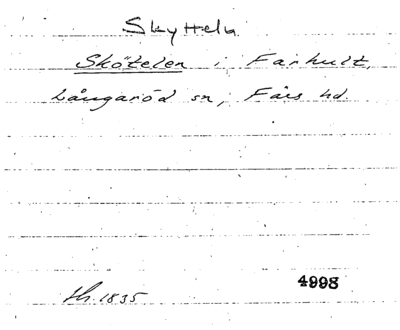 Skytteln
Skötelen i Farhult,
Långaröd sn, Färs hd.
lh. 1835
4998